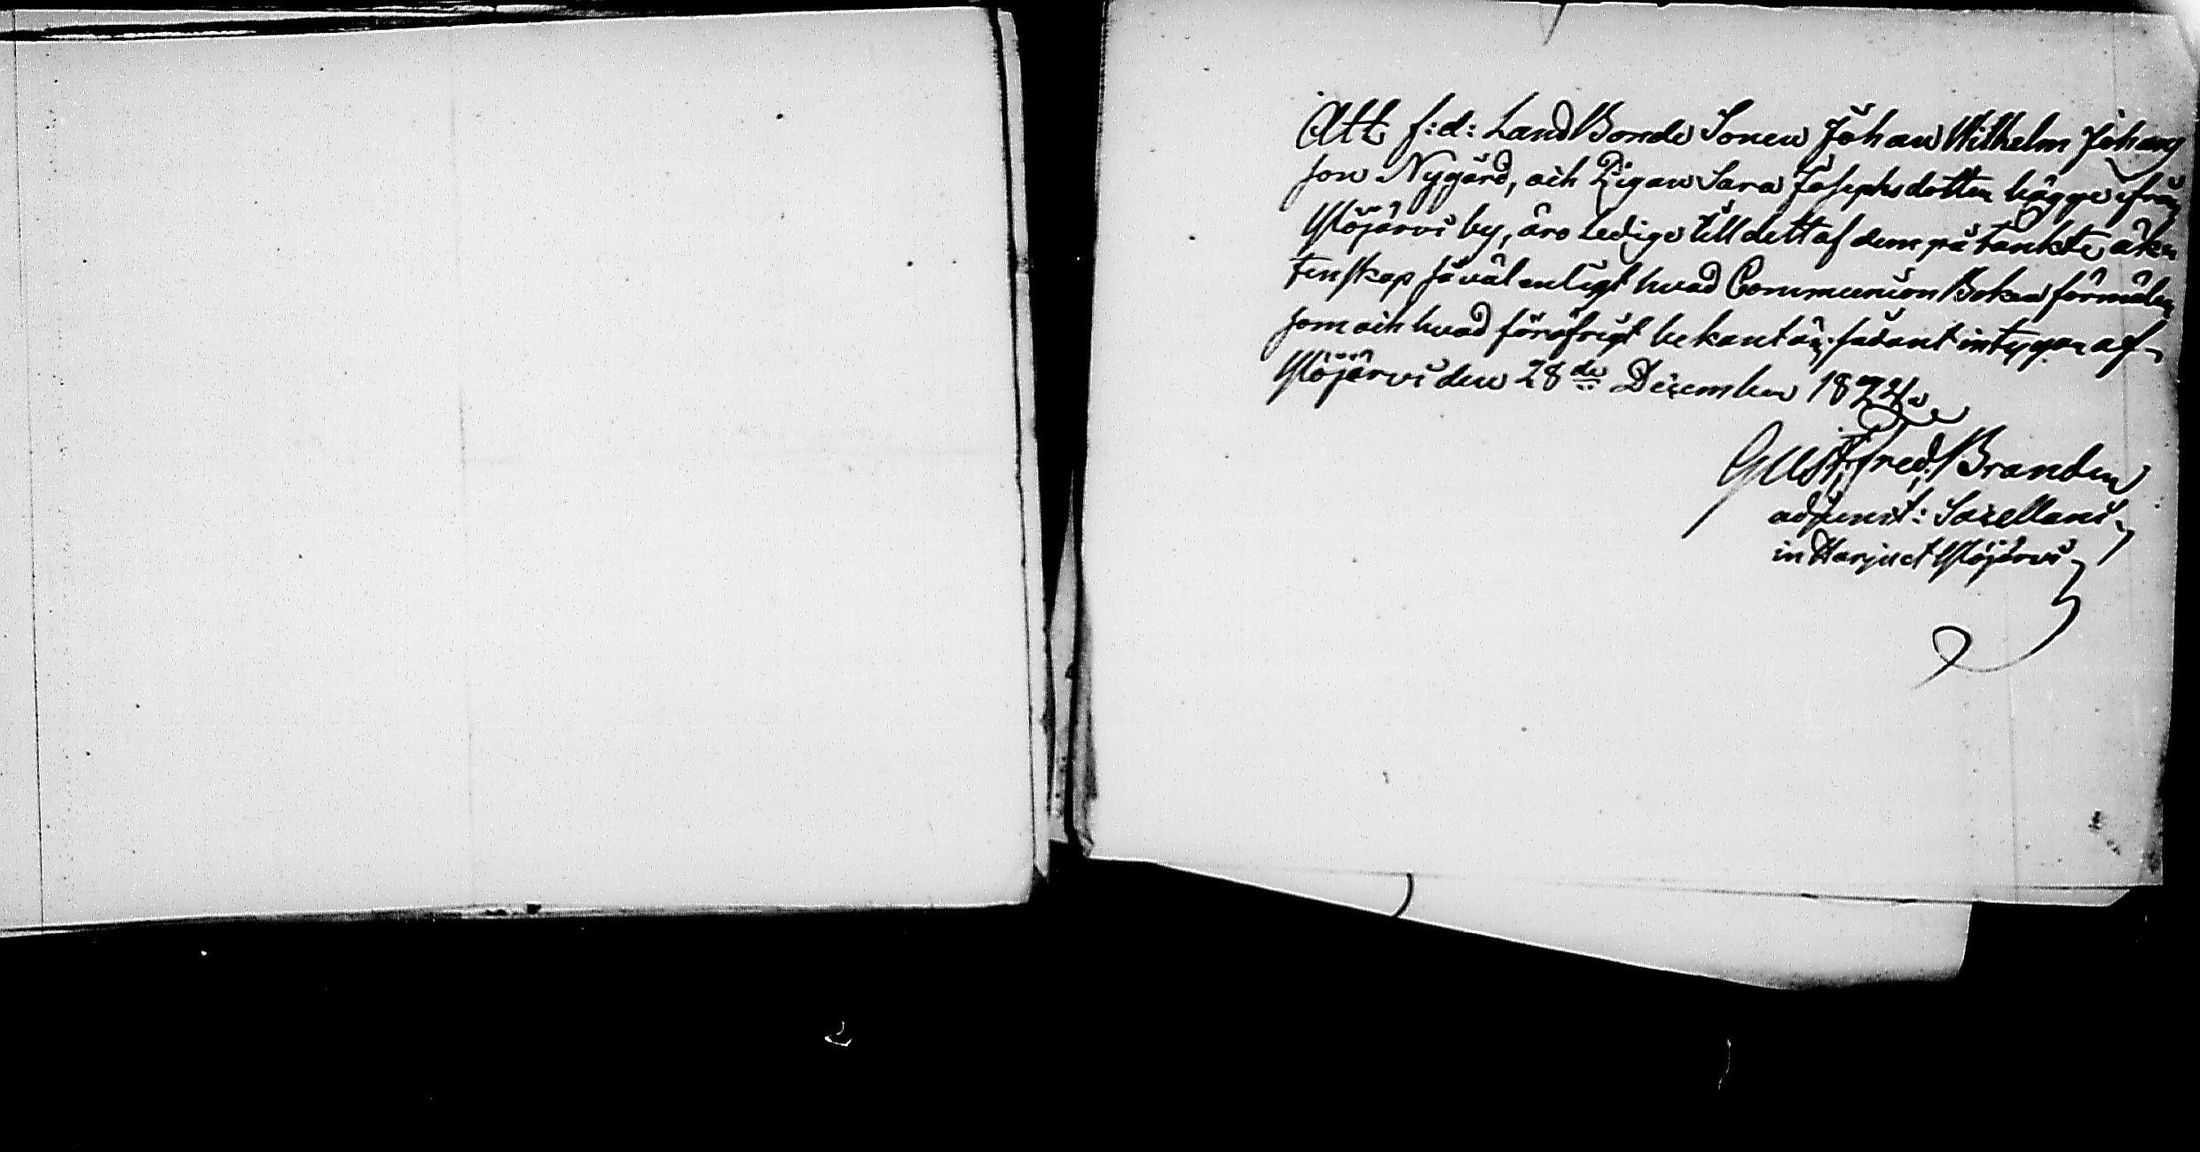 Att f:d: LandBonde Sonen Johan Wilhelm Johans
son Nygård, och Pigan Sara Josephsdotter bägge ifrån
Ylöjärvi by, äro Ledige till dett af dem på tänkte äkta
tenskap så väl enligt hvad Communion Boken förmäler
som och hvad föröfrigt bekant är; sådant intygar af
Ylöjärvi den 28de December 1824.
Gust: Fred: Brander
adjunct: Sacellani
in Harju et Ylöjärvi